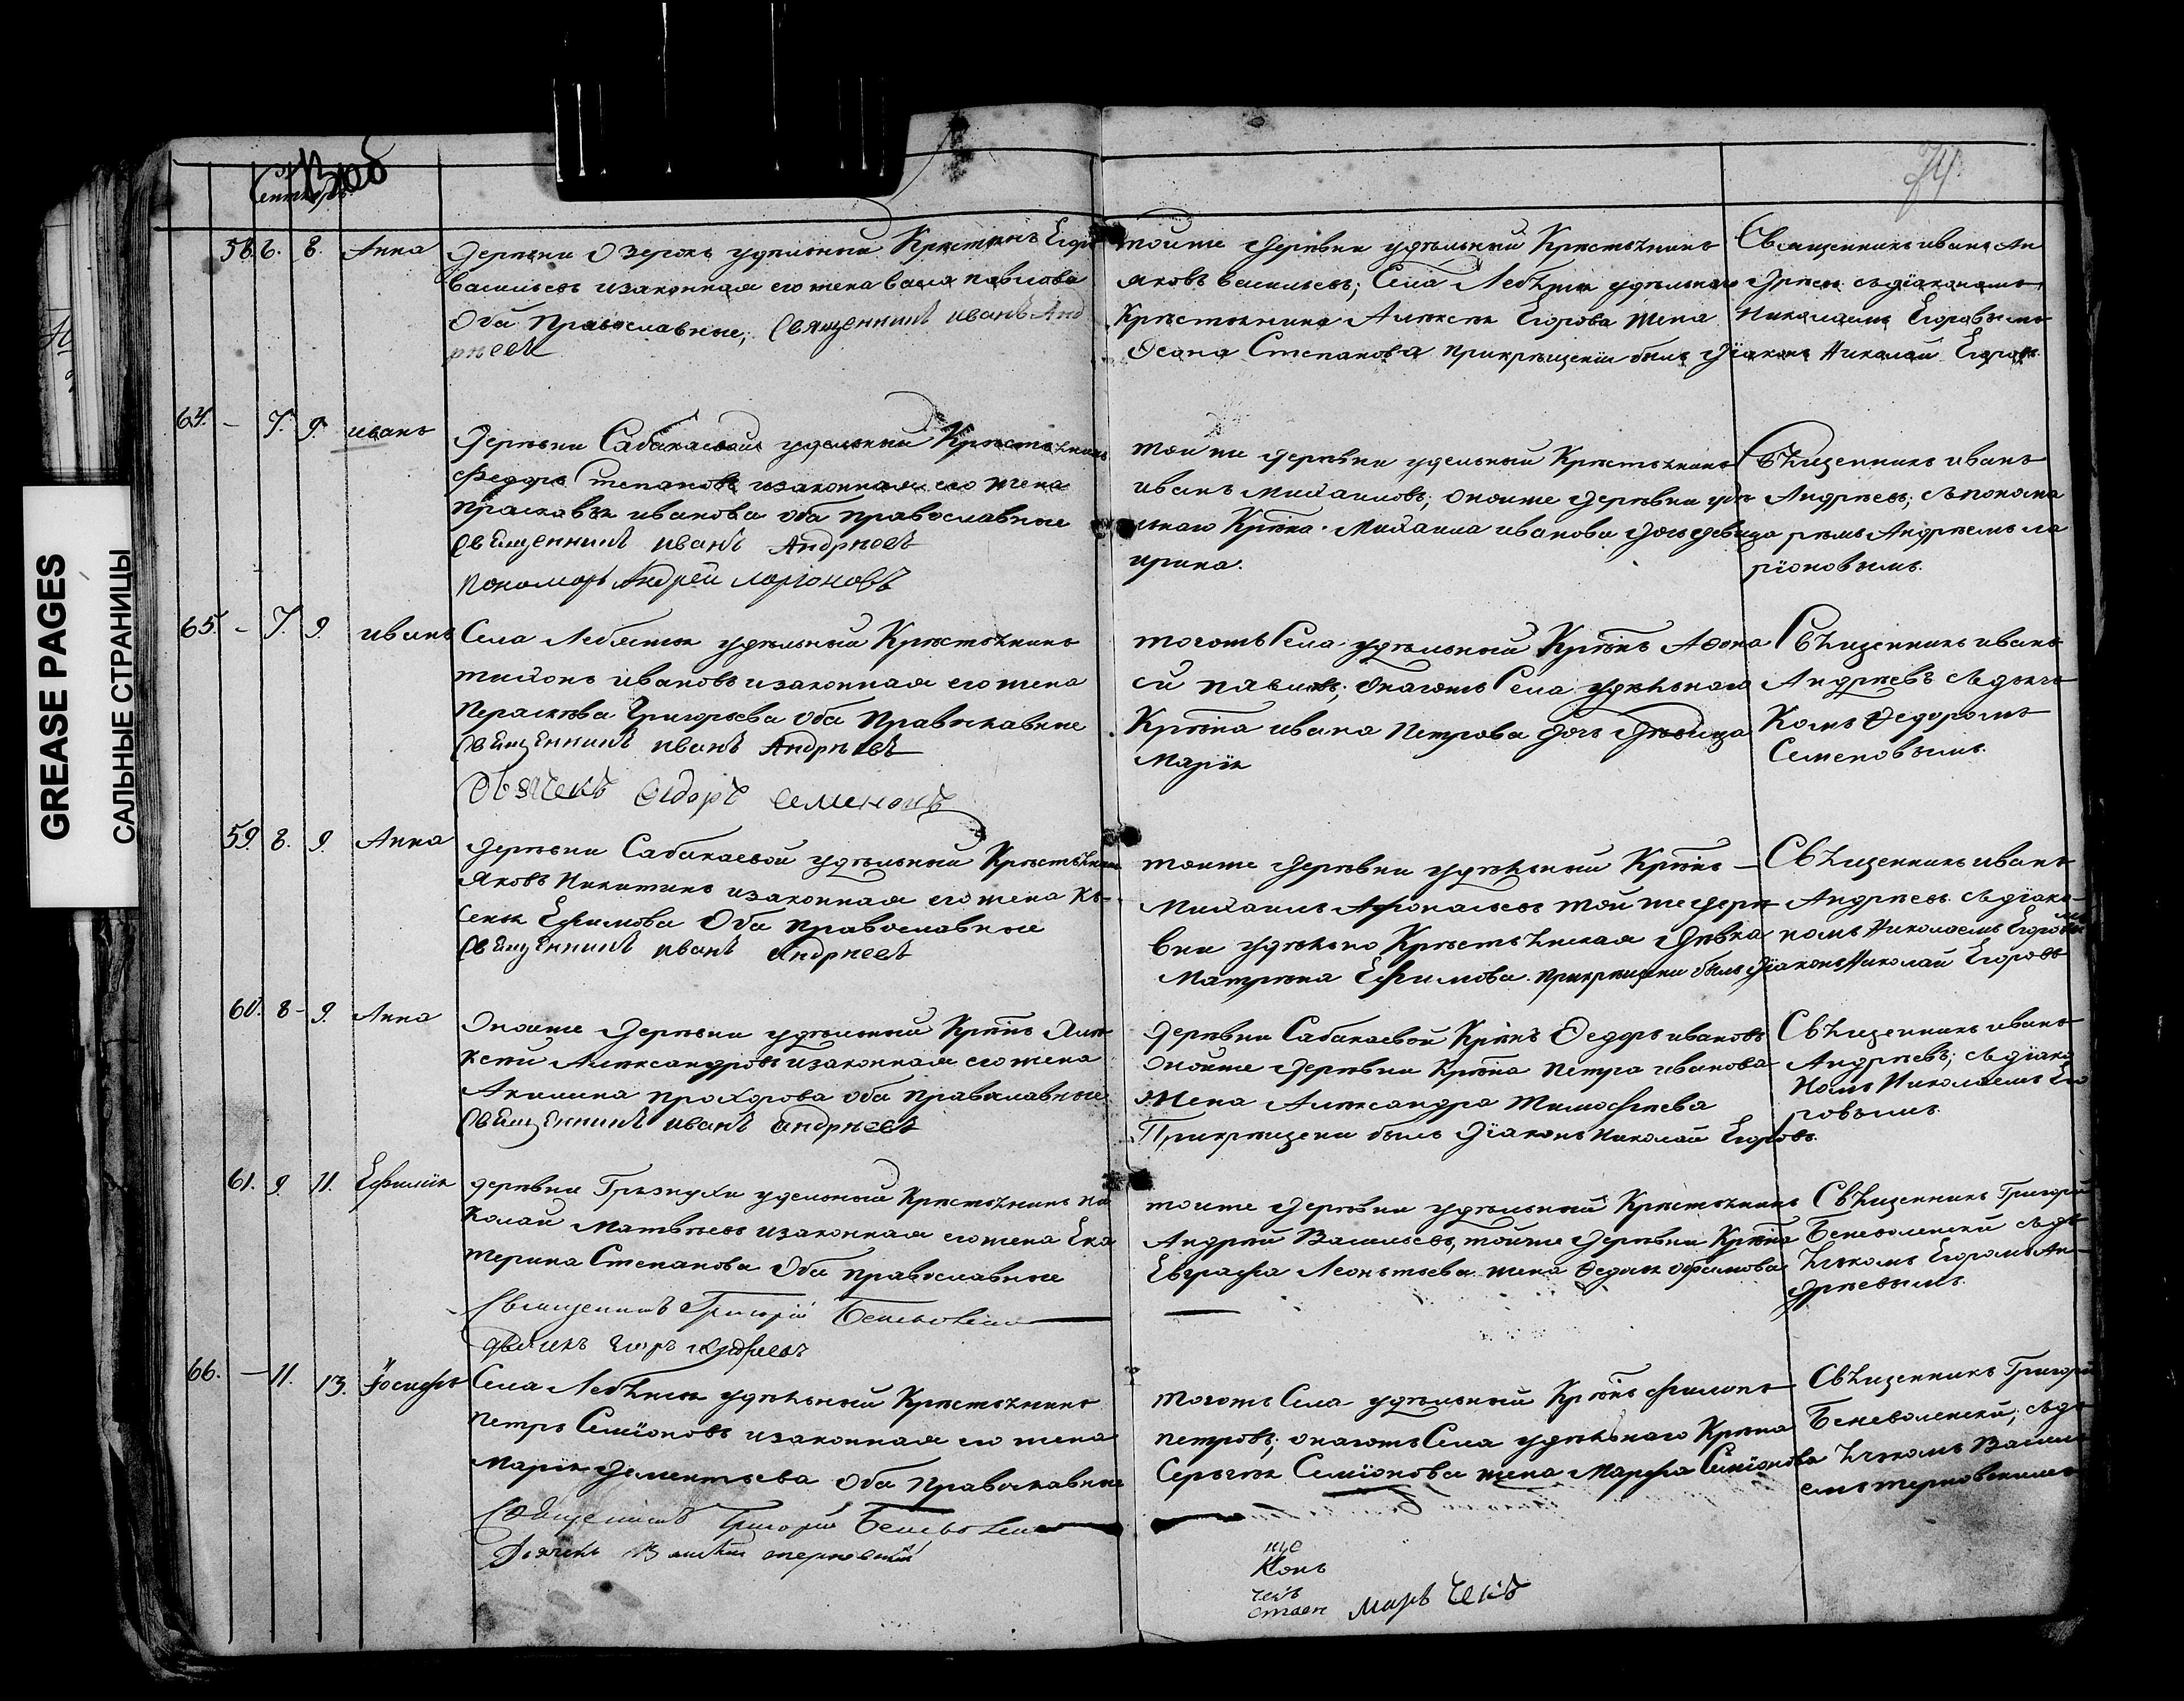 GREASE PAGES
САЛЬНЫЕ СТРАНИЦЫ
Сентябрь
74
58. 6. 8. Анна
Деревни Озерокъ удѣльный Крестьянинъ Егоръ
Васильевъ изаконная его жена васса павлова
Оба Православные, Священникъ иванъ Анд
рѣевъ
тойже деревни удѣльный Крестьянинъ
яковъ васильевъ; Села Лебяжья удѣльнаго
Крестьянина Алексѣя Егорова жена
Ѳсана Степанова прикрѣщеніи былъ Діаконъ Николай Егоровъ
Священникъ иванъ Ан
дрѣевъ съдіакономъ
Николаемъ Егоровымъ
64. – 7. 9. иванъ
Деревни Сабакаевой удельный Крестьянинъ
Федоръ Степановъ изаконная его жена
праскавья иванова оба православные
Священникъ иванъ Андрѣевъ
пономарь Андрей ларіоновъ
Той же деревни удельный Крестьянинъ
иванъ михаиловъ; оноиже деревни удѣ
льнаго Крѣна михаила иванова дочь девица
ирина.
Священникъ иванъ
Андрѣевъ; съпонома
ремъ Андрѣемъ ла
ріоновымъ.
65. – 7. 9. иванъ
Села Лебяжья удѣльный Крестьянинъ
тихонъ ивановъ изаконная его жена
Параскѣва Григорьева оба Православные
Священникъ иванъ Андрѣевъ
Дьячекъ Ѳедоръ Семеновъ
тогожъ Села удѣльный Крѣнъ Аѳона
сій павловъ; онагожъ Села удѣльнаго
Крѣна ивана Петрова дочь дѣвица
Марія
Священникъ иванъ
Андрѣевъ съдьяч
комъ Ѳедоромъ
Семеновымъ.
59. 8. 9. Анна
Деревни Сабакаевой удѣльный Крестьянинъ
Яковъ Никитинъ изаконная его жена Кь-
сенья Ефимова Оба православные
Священникъ иванъ Андрѣевъ
тоиже деревни удѣльный Крѣнъ –
Михаилъ Афонасьевъ той же дере
вни удѣльно Крестьянская дѣвка
Матрена Ефимова. прикрѣщени былъ діаконъ Николай Егоровъ
Священникъ иванъ
Андрѣевъ съдіако-
номъ Николаемъ Егоровы
мъ
60. 8 – 9. Анна
Оноиже Деревни удѣльный Крѣнъ Але
ксѣй Александровъ изаконная его жена
Акилина прохорова оба православные
Священникъ иванъ андрѣевъ
деревни Сабакаевой Крѣнъ Ѳедоръ ивановъ
онойже деревни Крѣна петра иванова
жена Александра тимофѣева
Прикрѣщени былъ діаконъ Николай Егоровъ.
Священникъ иванъ
Андрѣевъ; съдіако
номъ Николаемъ Его
ровымъ.
61. 9. 11. Ефимія
деревни Грязнухи удельный Крестьянинъ Ни
колай Матвѣевъ изаконная его жена Ека
терина Степанова Оба православные
Священникъ Григорій Беневоленс
дьячекъ Егоръ Андреевъ
тоиже деревни удѣльный Крестьянинъ
Андрѣй Васильевъ, тойже деревни Крѣна
Евграфа Леонтьева жена Ѳедосья
Священникъ Григорій
Беневоленскй съдь
ячкомъ Егоромъ Ан-
дрѣевымъ.
66. – 11. 13. Іосифъ
Села Лебяжья удѣльный Крестьянинъ
петръ Семіоновъ изаконная его жена
Марія дементьева Оба Православные
Священникъ Григорій Беневоленс
Дьячекъ Василій терновскій
тогожъ Села удѣльный Крѣнъ филипъ
петровъ; онагожъ Села удѣльнаго Крѣна
Сергѣя Семіонова жена Марфа Семіонова
Священникъ Григорій
Беневоленскй; съдь
ячкомъ Василь
емъ терновскимъ